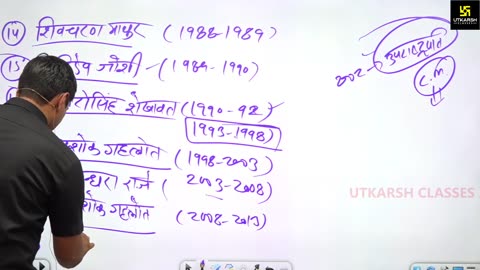 14) शिवचरण माथुर (1988-1989)
15) जोशी - (1989-1990)
शेखावत (1990-92)
1993-1998
अशोक गहलोत (1998-2003)
राजे (2003-2008)
अशोक गहलोत (2008-2013)
उपराष्ट्रपति
C.M
UTKARSH
CLASSES
UTKARSH CLASSES